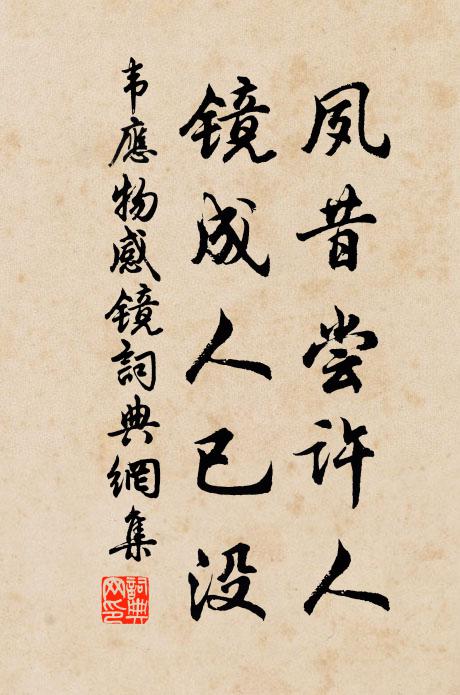 夙昔尝许人
镜成人已没
韦應物感镜詞典網集
詞典网印